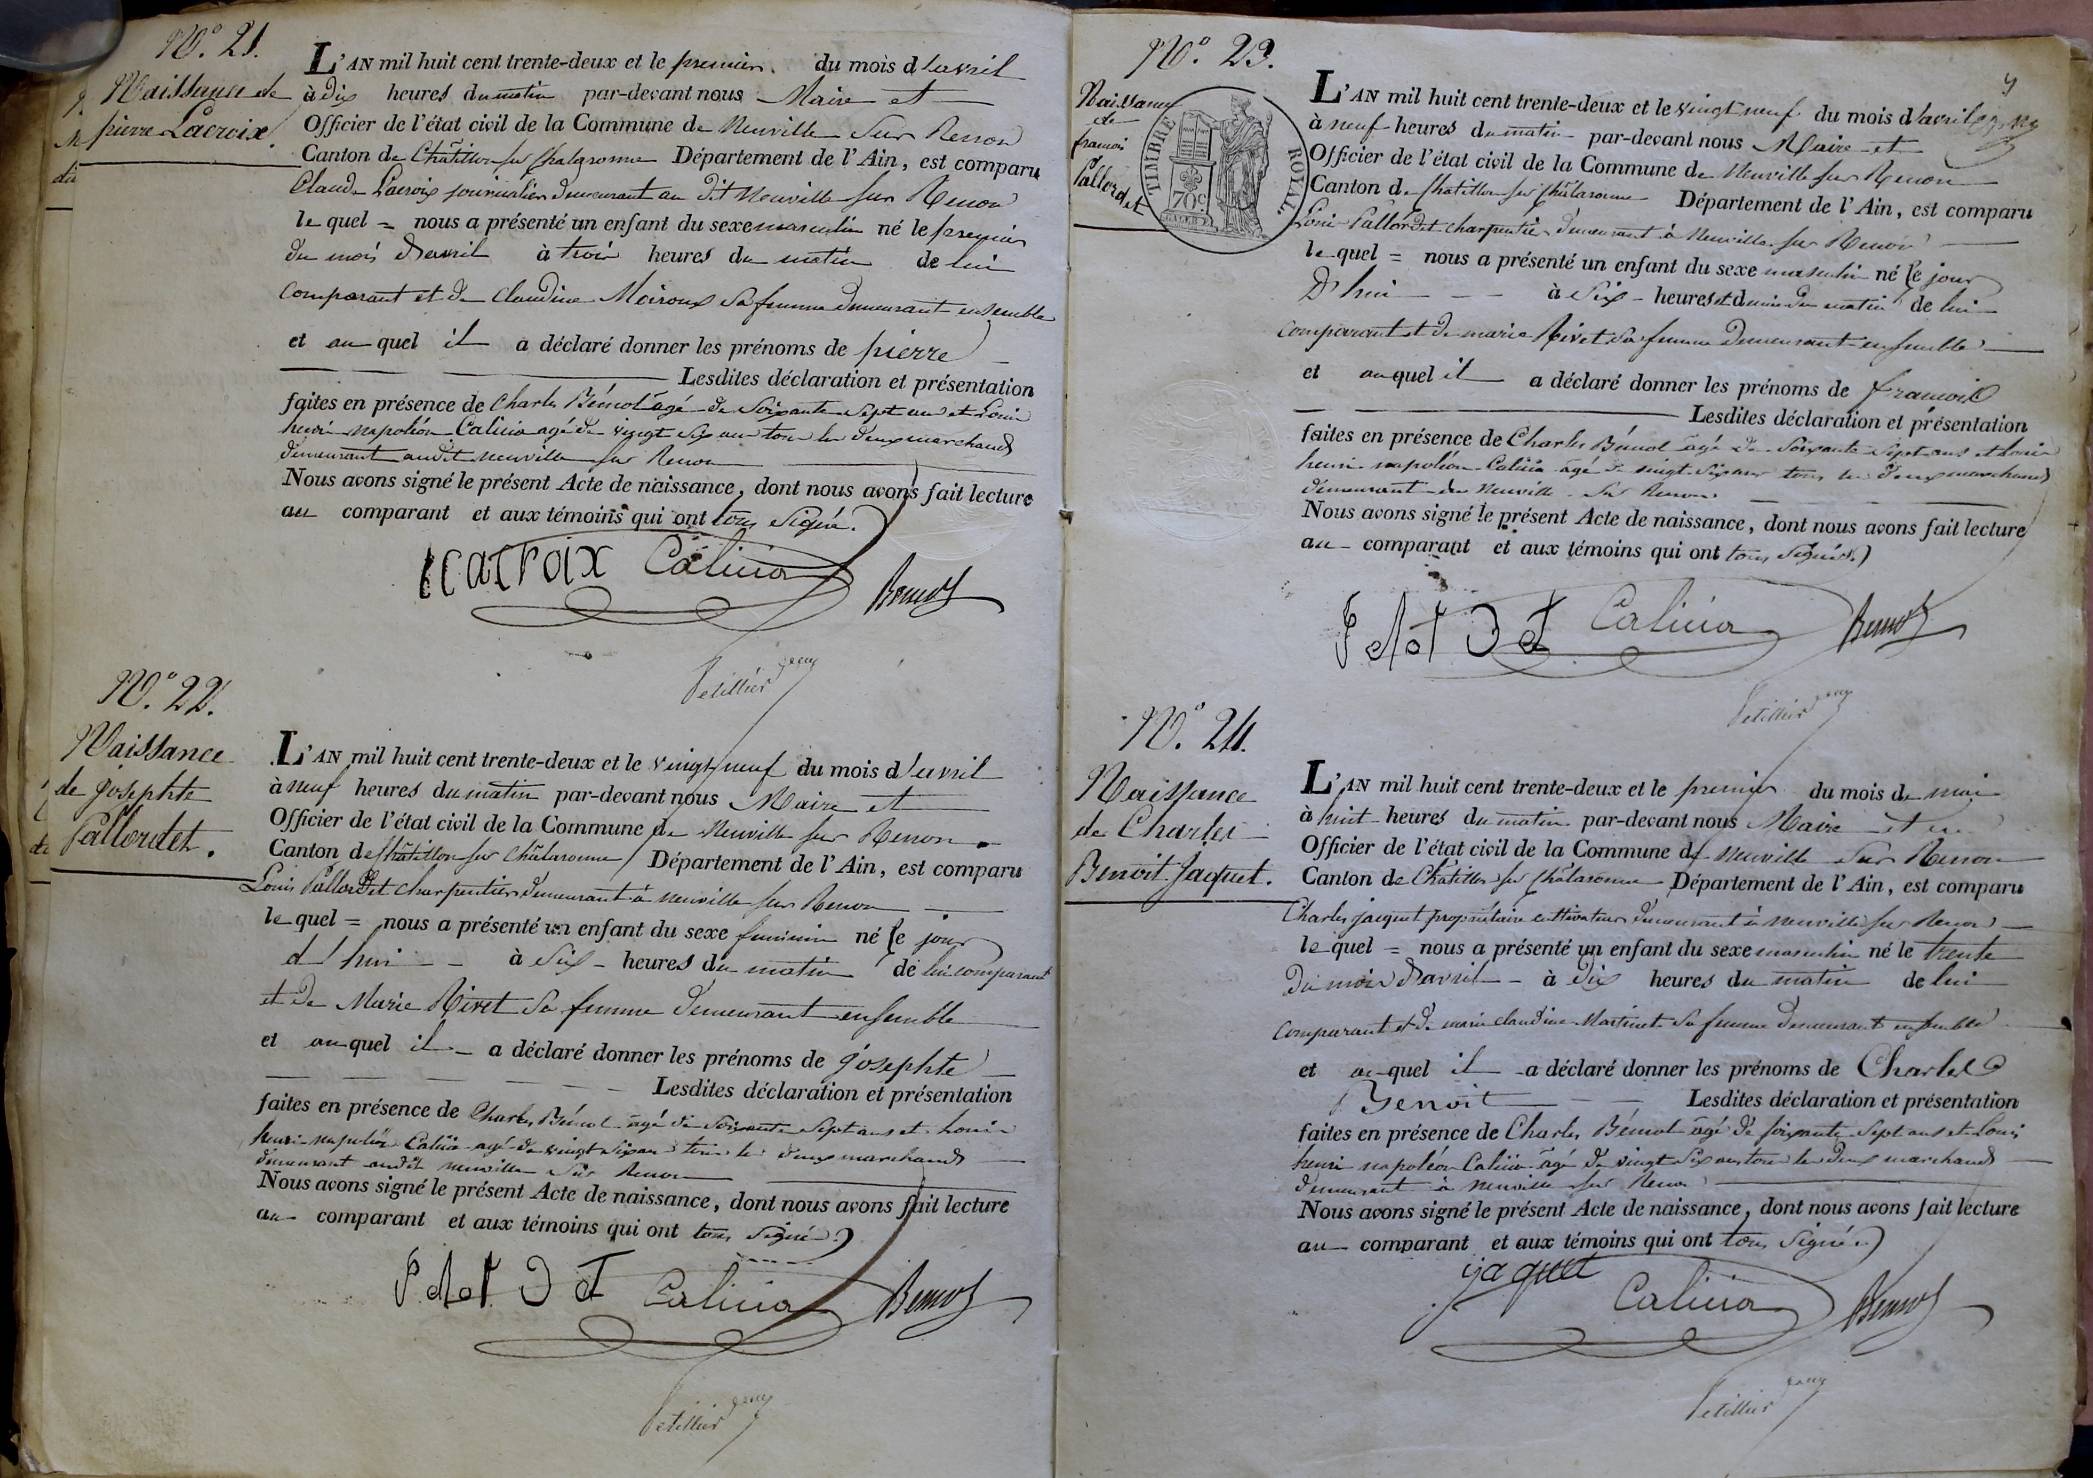 N.° 21.
Naissance de
pierre Lacroix.
L'AN mil huit cent trente-deux et le premier du mois d'avril
à dix heures du matin par-devant nous Maire et
Officier de l'état civil de la Commune de Neuville sur Renon
Canton de Châtillon sur Chalaronne Département de l'Ain, est comparu
Claude Lacroix journalier demeurant au dit Neuville sur Renon
le quel = nous a présenté un enfant du sexe masculin né le premier
du mois d'avril à trois heures du matin de lui
comparant et de Claudine Moiroux sa femme demeurant ensemble
et au quel il a déclaré donner les prénoms de pierre
Lesdites déclaration et présentation
faites en présence de Charles Bémol âgé de soixante sept ans et Louis
henri napoléon Calicia agé de vingt six ans tous les deux marchands
demeurant audit neuville sur Renon
Nous avons signé le présent Acte de naissance, dont nous avons fait lecture
au comparant et aux témoins qui ont tous signé.
lacroix Calicia Bemol
Petillier
N.° 22.
Naissance
de josephte
Pallordet.
L'AN mil huit cent trente-deux et le vingt neuf du mois d'avril
à neuf heures du matin par-devant nous Maire et
Officier de l'état civil de la Commune de Neuville sur Renon
Canton de Châtillon sur Châlaronne Département de l'Ain, est comparu
Louis Pallordet charpentier demeurant à neuville sur Renon
le quel = nous a présenté un enfant du sexe feminin né le jour
d'hui à six heures du matin de lui comparant
et de Marie Rivet sa femme demeurant ensemble
et au quel il a déclaré donner les prénoms de josephte
Lesdites déclaration et présentation
faites en présence de Charles Bémol âgé de soixante sept ans et Louis
henri napoléon Calicia agé de vingt six ans tous les deux marchands
demeurant audit neuville sur Renon
Nous avons signé le présent Acte de naissance, dont nous avons fait lecture
au comparant et aux témoins qui ont tous signé.
Calicia Bemol
Petillier
N.° 23.
Naissance
de
francois
Pallordet
TIMBRE ROYAL.
70c
L'AN mil huit cent trente-deux et le vingt neuf du mois d'avril
à neuf heures du matin par-devant nous Maire et
Officier de l'état civil de la Commune de Neuville sur Renon
Canton de Chatillon sur Châlaronne Département de l'Ain, est comparu
Louis Pallordet charpentier demeurant à Neuville sur Renon
le quel = nous a présenté un enfant du sexe masculin né le jour
d'hui à six heures et demie du matin de lui
comparant et de marie Rivet sa femme demeurant ensemble
et au quel il a déclaré donner les prénoms de francois
Lesdites déclaration et présentation
faites en présence de Charles Bémol âgé de soixante sept ans et Louis
henri napoléon Calicia âgé de vingt six ans tous les deux marchands
demeurant à Neuville sur Renon
Nous avons signé le présent Acte de naissance, dont nous avons fait lecture
au comparant et aux témoins qui ont tous signés
Calicia Bemol
Petillier
N.° 24.
Naissance
de Charles
Benoit Jaquet.
L'AN mil huit cent trente-deux et le premier du mois de mai
à huit heures du matin par-devant nous Maire et
Officier de l'état civil de la Commune de Neuville sur Renon
Canton de Châtillon sur Châlaronne Département de l'Ain, est comparu
Charles jacquet propriétaire cultivateur demeurant à neuville sur Renon
le quel = nous a présenté un enfant du sexe masculin né le trente
du mois d'avril à dix heures du matin de lui
comparant et de marie claudine Martinet sa femme demeurant ensemble
et au quel il a déclaré donner les prénoms de Charles
Benoit Lesdites déclaration et présentation
faites en présence de Charles Bémol âgé de soixante sept ans et Louis
henri napoléon Calicia âgé de vingt six ans tous les deux marchands
demeurant à neuville sur Renon
Nous avons signé le présent Acte de naissance, dont nous avons fait lecture
au comparant et aux témoins qui ont tous signé.
jaquet
Calicia Bemol
Petillier